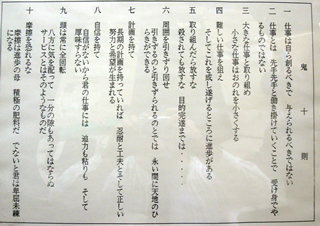 鬼十則
一 仕事は自ら創るべきで 与えられるべきではない
二 仕事とは 先手先手と働き掛けていくことで 受け身でや
るものではない
三 大きな仕事と取り組め
小さな仕事はおのれを小さくする
四 難しい仕事を狙え
そしてこれを成し遂げるところに進歩がある
五 取り組んだら放すな
殺されても放すな 目的完遂までは・・・・・
六 周囲を引きずり回せ
引きずるのと引きずられるのとでは 永い間に天地のひ
らきができる
七 計画を持て
長期の計画を持っていれば 忍耐と工夫とそして正しい
努力と希望が生まれる
八 自信を持て
自信がないから君の仕事には 迫力も粘りも そして
厚味すらない
九 頭は常に全回転
八方に気を配って 一分の隙もあってはならぬ
サービスとはそのようなものだ
十 摩擦を恐れるな
摩擦は進歩の母 積極の肥料だ でないと君は卑屈未練
になる